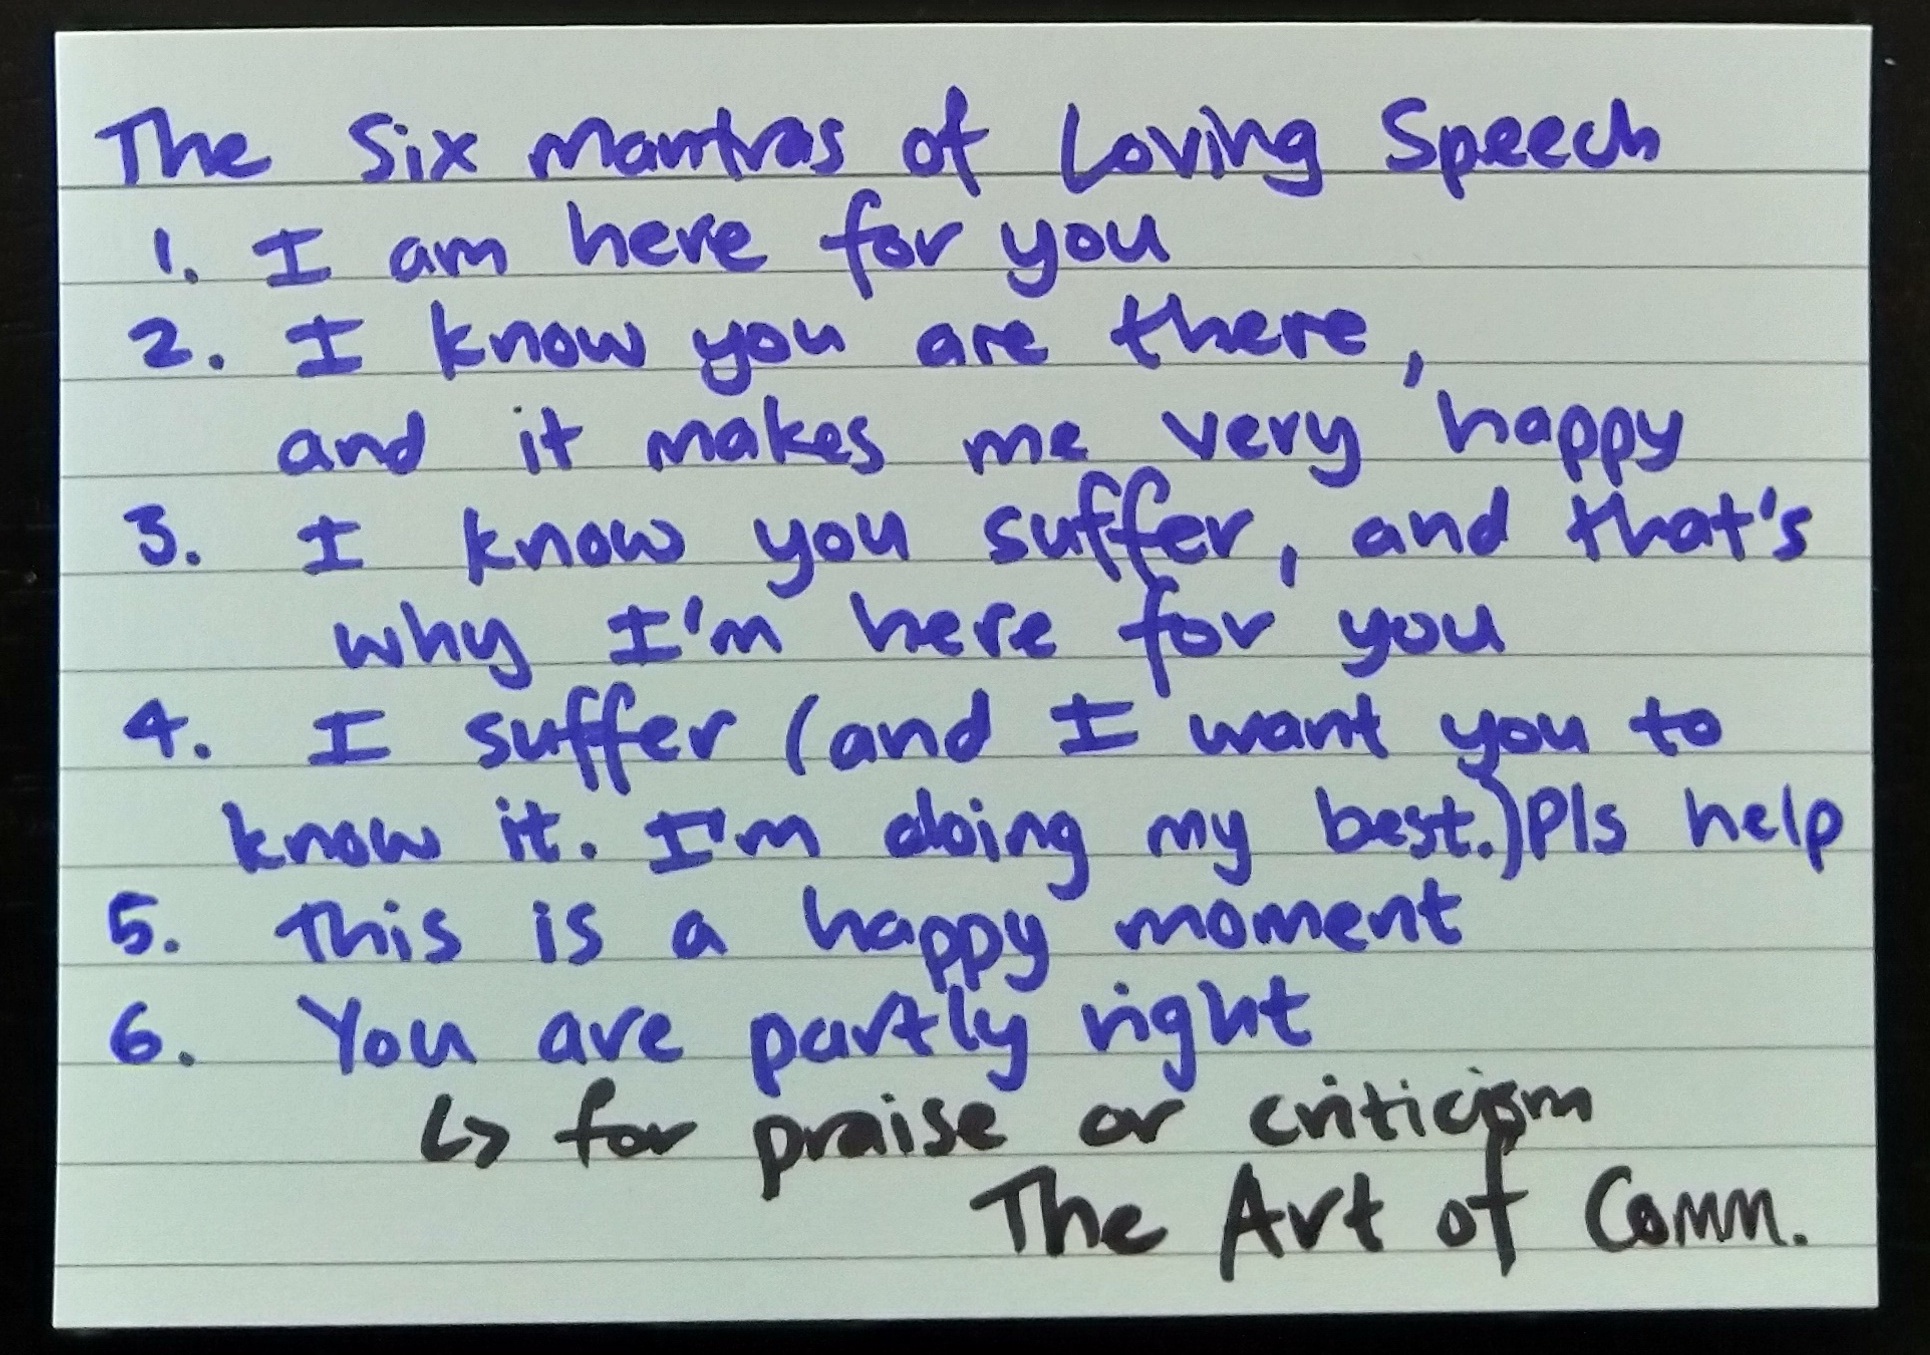 The Six Mantras of Loving Speech
1. I am here for you
2. I know you are there,
and it makes me very happy
3. I know you suffer, and that's
why I'm here for you
4. I suffer (and I want you to
know it. I'm doing my best.) Pls help
5. This is a happy moment
6. You are partly right
↳ for praise or criticism
The Art of Comm.